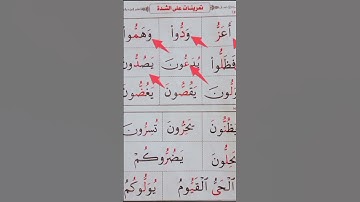 تمرينات على الشدة
أَعَزُّ وَدُّوا۟ وَهَمُّوا۟
فَظَلُّوا۟ يُدَعُّونَ يَصُدُّونَ
يَقُصُّونَ يَغُضُّونَ
يَظُنُّونَ تُسِرُّونَ
يَضُرُّوكُمْ
ٱلْحَىُّ ٱلْقَيُّومُ يُوَلُّوكُمُ